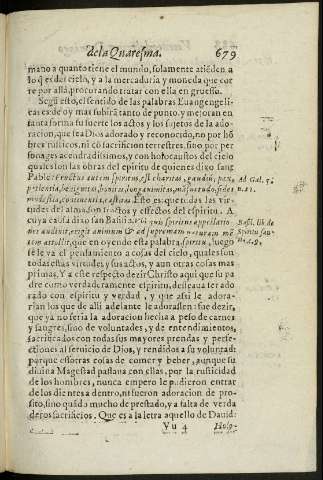 de la Quaresma. 679
mano a quanto tiene el mundo, solamente atiẽden a
lo q̃ es del cielo, y a la mercaduria y moneda que cor
re por allà, procurando tratar con ella en gruesso.
Segũ esto, el sentido de las palabras Euangengeli-
cas es de oy mas subirà tanto de punto, y mejoran en
tanta forma su suerte los actos y los sujetos de la ado-
racion, que sea Dios adorado y reconocido, no por hõ
bres rusticos, ni cõ sacrificios terrestres, sino por per
sonages acendradissimos, y con holocaustos del cielo
quales son las obras del espiritu de quienes dixo sang
Pablo: Fructus autem spiritus, est charitas, gaudiũ, pax,
patientia, benignitas, bonitas, longanimitas, mãsuetudo, fides
modestia, continentia, castitas. Esto es: que todas las vir-
tudes del alma, son fructos y effectos del espiritu. A
cuya causa dixo san Basilio: Vbi quis spiritus appellatio-
nes audiuit, erigit animum & ad supremam naturam mẽ
tem attollit, que en oyendo esta palabra, spiritu, luego
se le va el pensamiento a cosas del cielo, quales son
todas estas virtudes y sus actos, y aun otras cosas mas
primas. Y a este respecto dezir Christo aqui que su pa
dre como verdaderamente espiritu, desseaua ser ado
rado con espiritu y verdad, y que assi le adora-
rian los que de alli adelante le adorassen: fue dezir,
que ya no seria la adoracion hecha a peso de carnes
y sangres, sino de voluntades, y de entendimientos,
sacrificados con todas sus mayores prendas y perfe-
ctiones al seruicio de Dios, y rendidos a su voluntad:
porque essotras cosas de comer y beber, aunque su
diuina Magestad passaua con ellas, por la rusticidad
de los hombres, nunca empero le pudieron entrar
de los dientes a dentro, ni fueron adoracion de pro-
posito, sino quãdo mucho de prestado, y a falta de verda
deros sacrificios. Que es a la letra aquello de Dauid:
Vu 4 Holo-
Ad Gal. 5.
n. 22.
Basil. lib. de
Spiritu san-